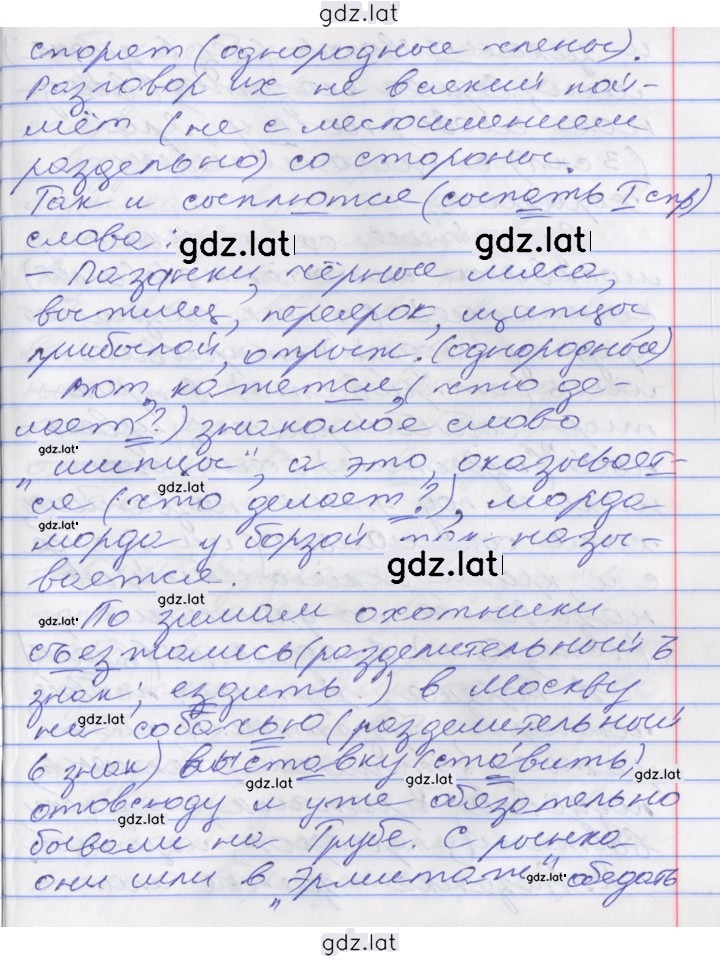 gdz.lat
спорят (однородные члены).
Разговор их не всякий пой-
мёт (не с местоимением
раздельно) со стороны.
Так и сыплются (сыпать I спр)
слова:
gdz.lat gdz.lat
– Пазанки, чёрные мяса,
выжлец, переярок, щипцы,
прибылой, отрыж. (однородные)
Вот, кажется, (что де-
лает?) знакомое слово
gdz.lat
"щипцы", а это, оказывает-
gdz.lat
ся (что делает?), морда
gdz.lat
морда у борзой так назы-
gdz.lat
вается.
gdz.lat
gdz.lat
– По зимам охотники
съезжались (разделительный ъ
знак; ездить) в Москву
gdz.lat
на собачью (разделительный
ь знак) выставку (ставить)
gdz.lat gdz.lat gdz.lat
отовсюду и уже обязательно
gdz.lat
бывали на Трубе. С рынка
они шли в "Эрмитаж" обедать
gdz.lat
gdz.lat